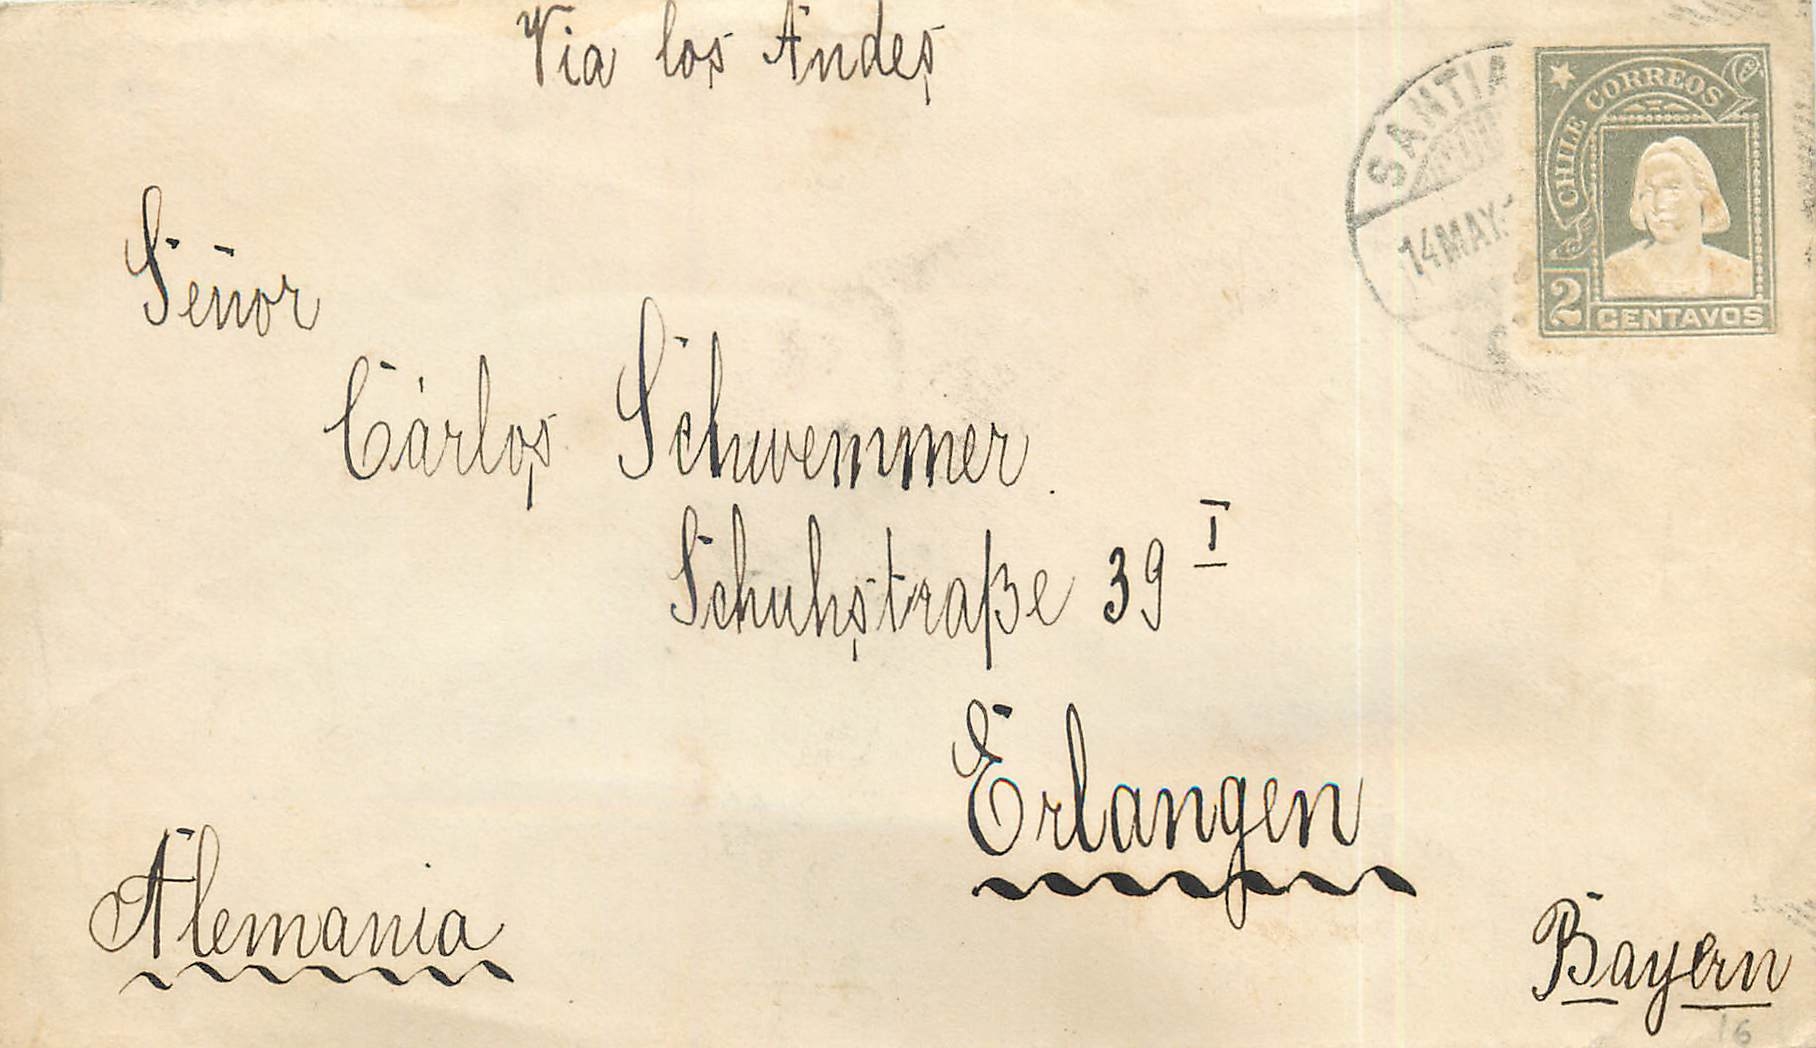 Via los Andes
SANTIA
14 MAY
CHILE CORREOS
2 CENTAVOS
Señor
Cárlos Schwemmer.
Schuhstraße 39 I
Erlangen
Alemania
Bayern
16